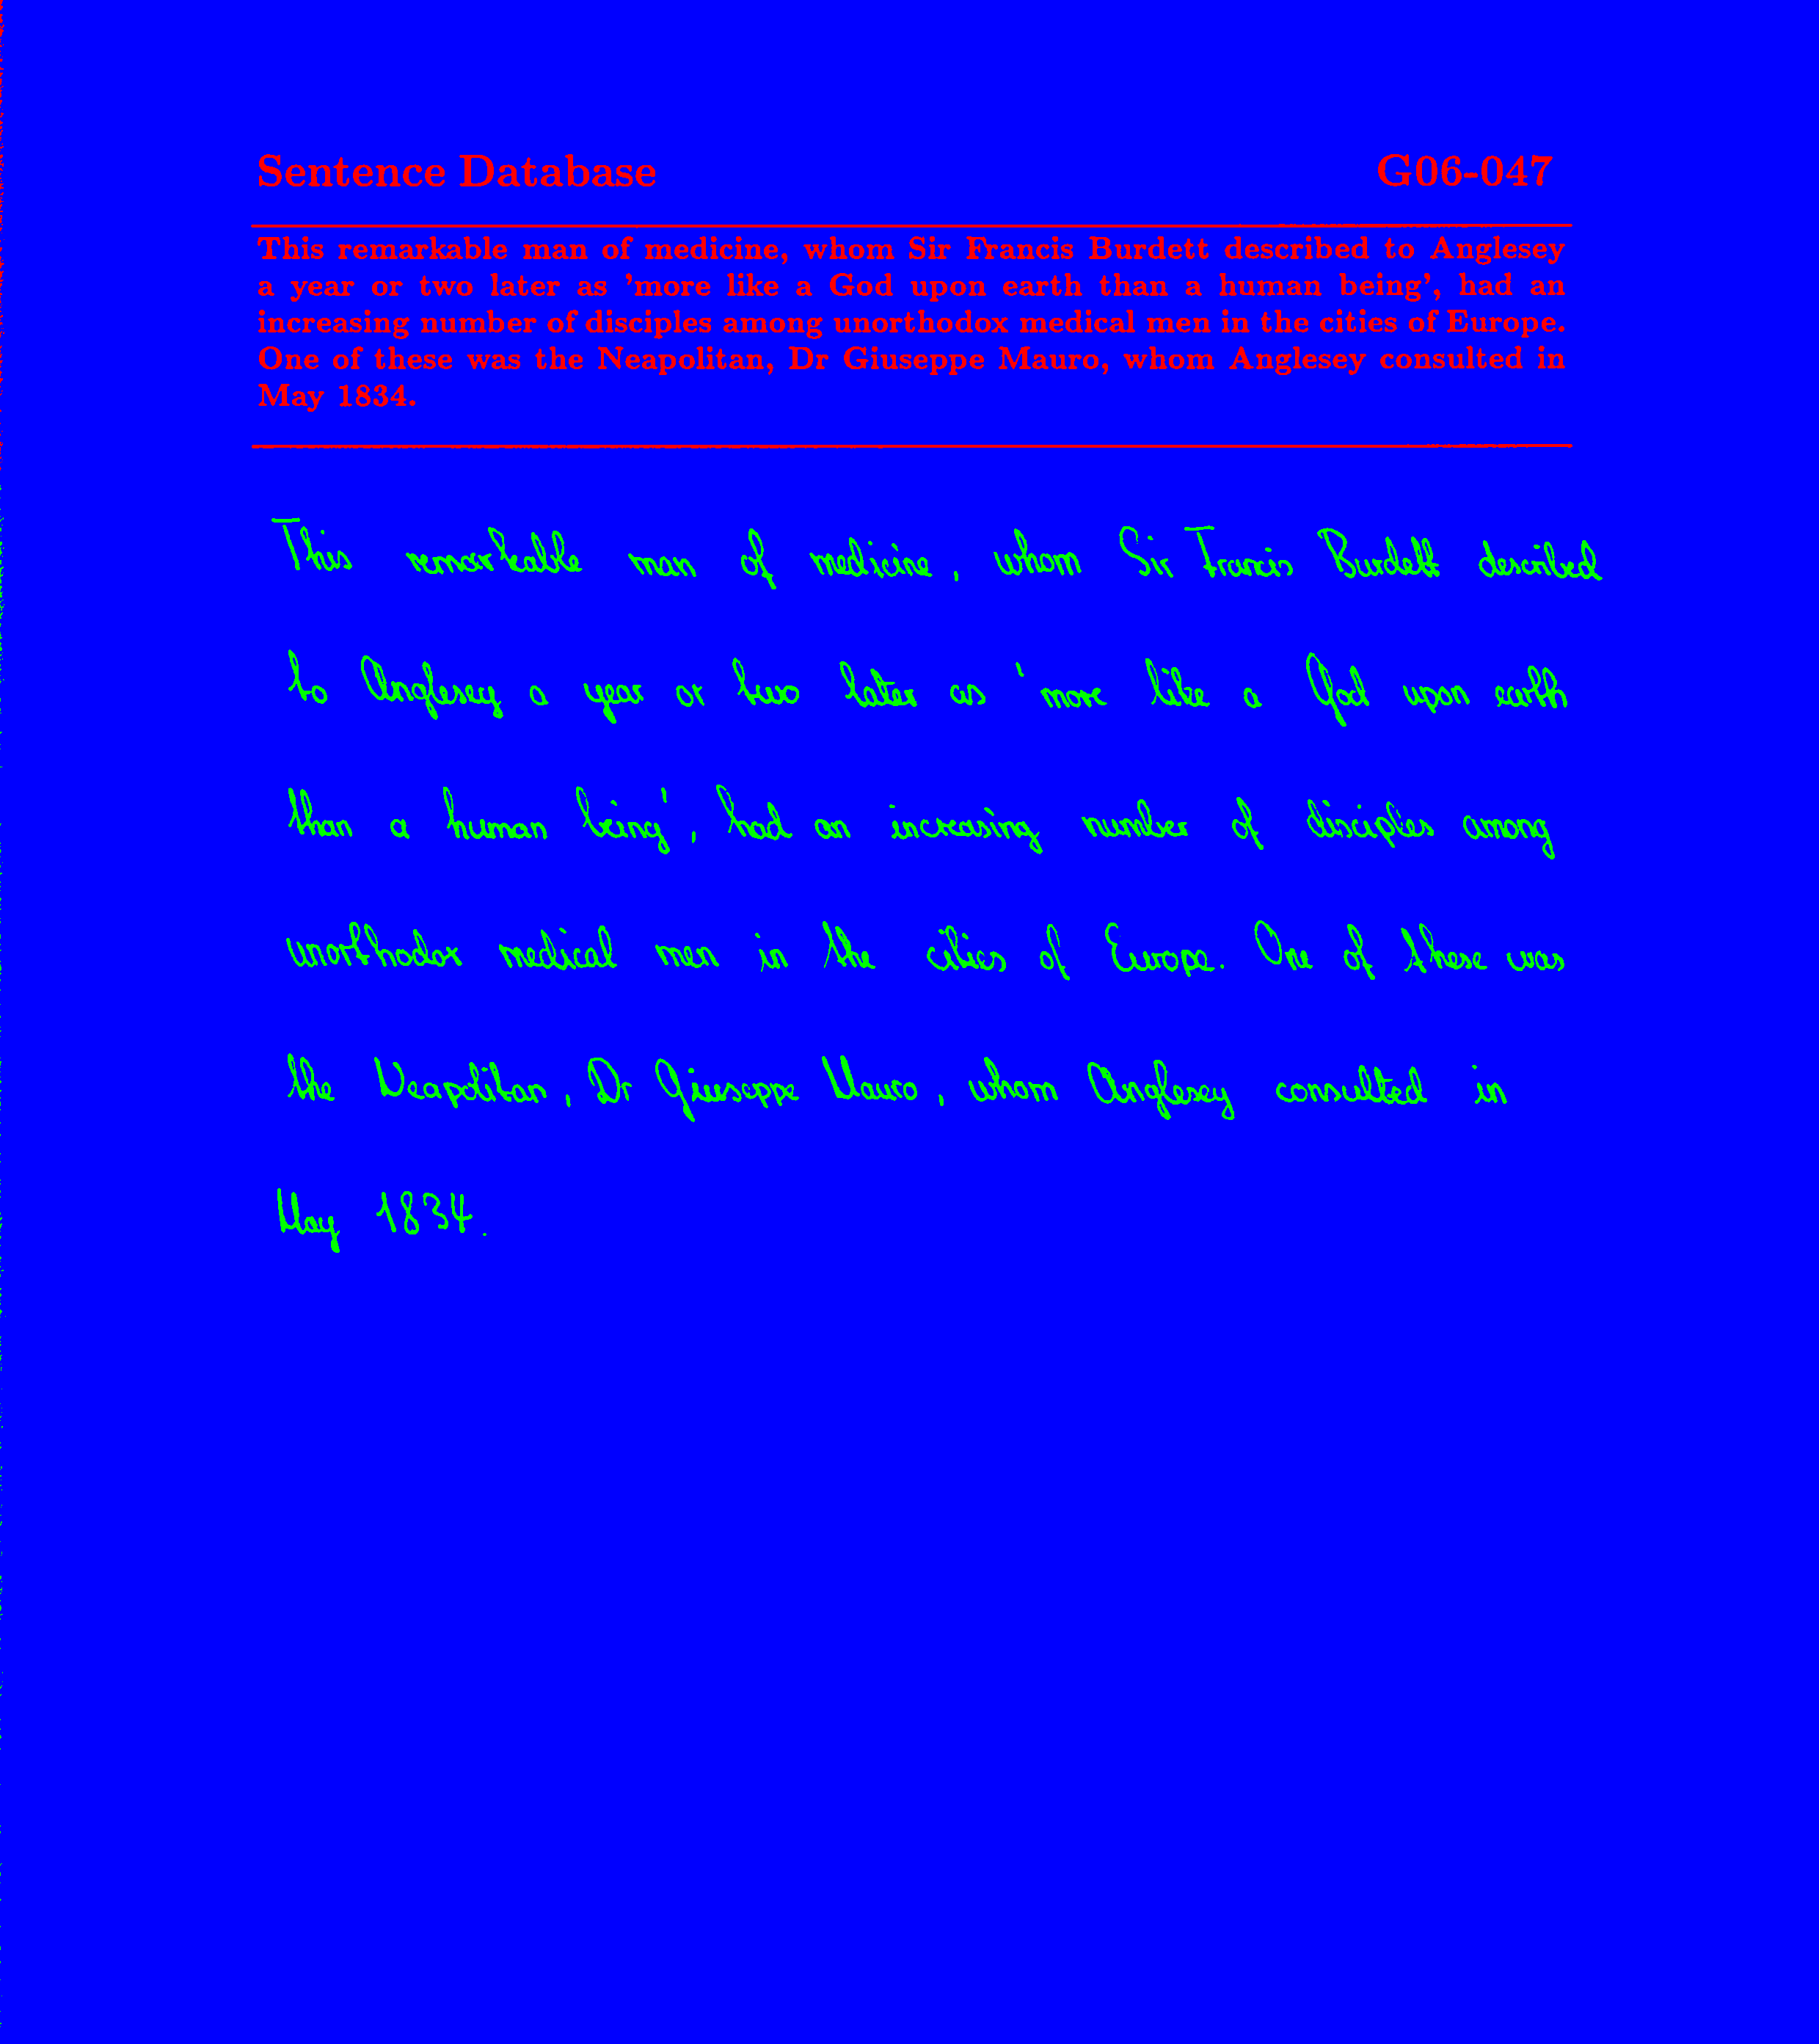 Sentence Database G06-047
This remarkable man of medicine, whom Sir Francis Burdett described to Anglesey
a year or two later as 'more like a God upon earth than a human being', had an
increasing number of disciples among unorthodox medical men in the cities of Europe.
One of these was the Neapolitan, Dr Giuseppe Mauro, whom Anglesey consulted in
May 1834.
This remarkable man of medicine, whom Sir Francis Burdett described
to Anglesey a year or two later as 'more like a God upon earth
than a human being', had an increasing number of disciples among
unorthodox medical men in the cities of Europe. One of these was
the Neapolitan, Dr Giuseppe Mauro, whom Anglesey consulted in
May 1834.